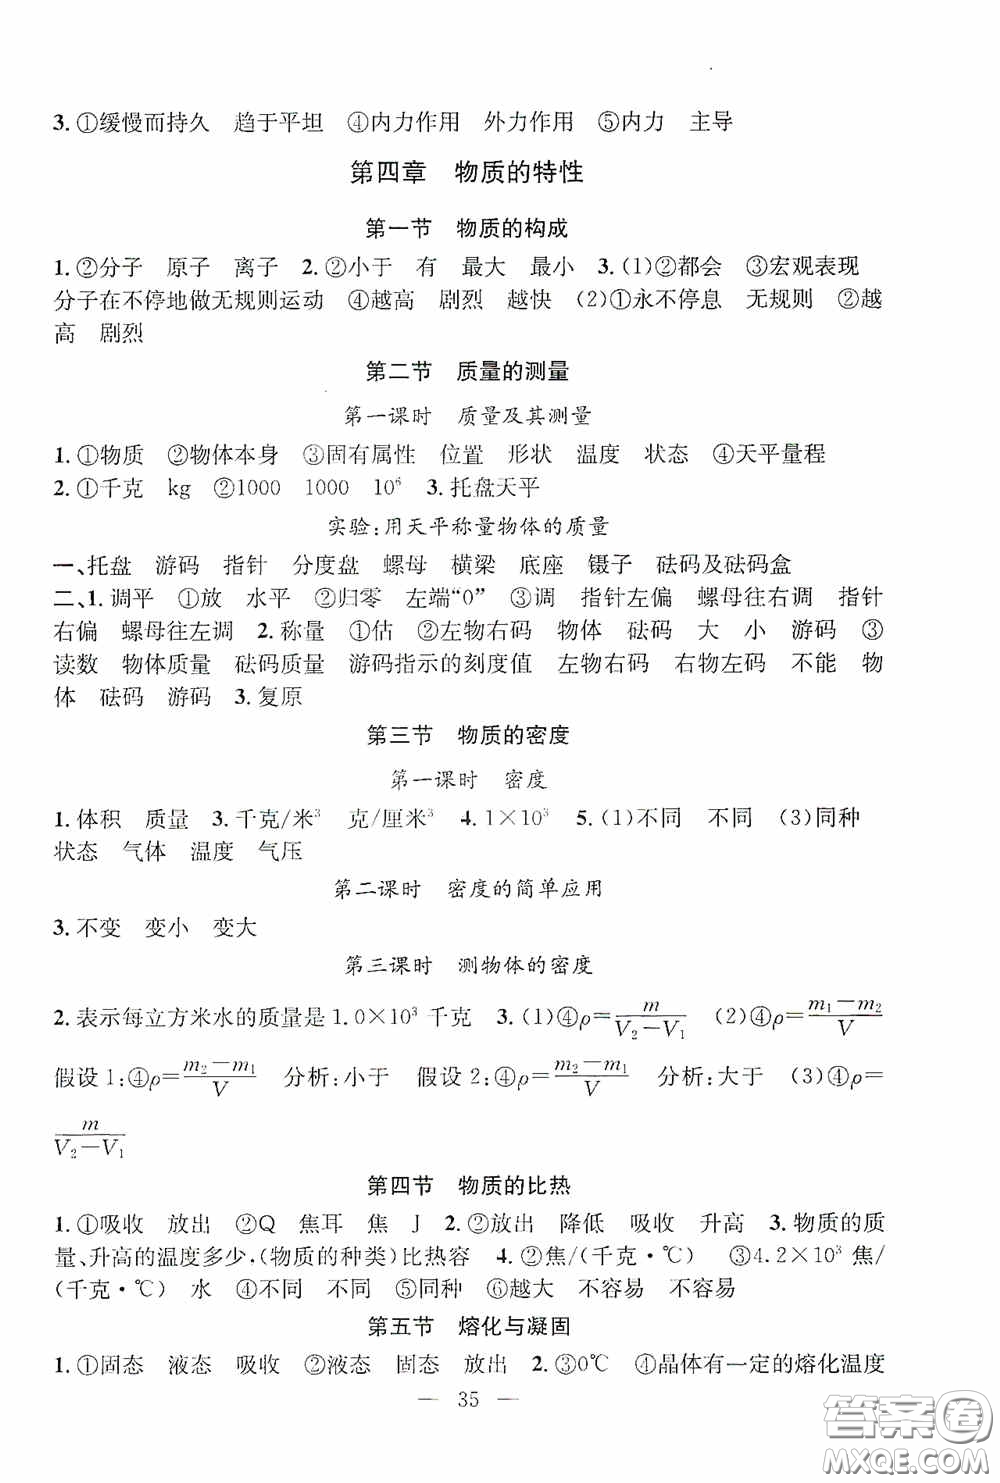 3. ①缓慢而持久　趋于平坦　④内力作用　外力作用　⑤内力　主导
第四章　物质的特性
第一节　物质的构成
1. ②分子　原子　离子　2. ②小于　有　最大　最小　3. (1)②都会　③宏观表现
分子在不停地做无规则运动　④越高　剧烈　越快　(2)①永不停息　无规则　②越
高　剧烈
第二节　质量的测量
第一课时　质量及其测量
1. ①物质　②物体本身　③固有属性　位置　形状　温度　状态　④天平量程
2. ①千克　kg　②1000　1000　10⁶　3. 托盘天平
实验:用天平称量物体的质量
一、托盘　游码　指针　分度盘　螺母　横梁　底座　镊子　砝码及砝码盒
二、1. 调平　①放　水平　②归零　左端“0”　③调　指针左偏　螺母往右调　指针
右偏　螺母往左调　2. 称量　①估　②左物右码　物体　砝码　大　小　游码　③
读数　物体质量　砝码质量　游码指示的刻度值　左物右码　右物左码　不能　物
体　砝码　游码　3. 复原
第三节　物质的密度
第一课时　密度
1. 体积　质量　3. 千克/米³　克/厘米³　4. 1×10³　5. (1)不同　不同　(3)同种
状态　气体　温度　气压
第二课时　密度的简单应用
3. 不变　变小　变大
第三课时　测物体的密度
2. 表示每立方米水的质量是1.0×10³千克　3. (1)④ρ=m/(V₂−V₁)　(2)④ρ=(m₁−m₂)/V
假设1:④ρ=(m₂−m₁)/V　分析:小于　假设2:④ρ=(m₂−m₁)/V　分析:大于　(3)④ρ=
m/(V₂−V₁)
第四节　物质的比热
1. ①吸收　放出　②Q　焦耳　焦　J　2. ②放出　降低　吸收　升高　3. 物质的质
量、升高的温度多少,(物质的种类)比热容　4. ②焦/(千克·℃)　③4.2×10³焦/
(千克·℃)　水　④不同　不同　⑤同种　⑥越大　不容易　不容易
第五节　熔化与凝固
1. ①固态　液态　吸收　②液态　固态　放出　2. ③0℃　④晶体有一定的熔化温度
— 35 —
答案圈
MXQE.COM